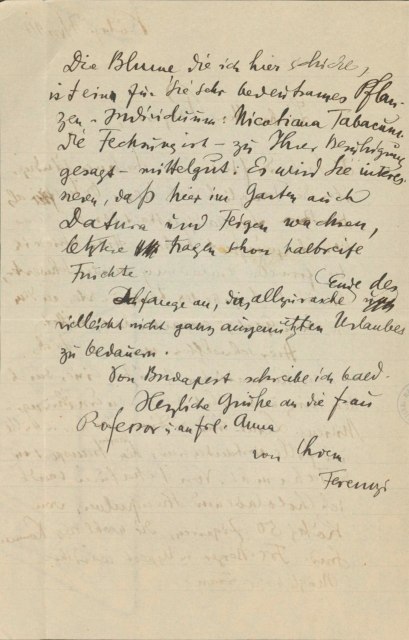 Die Blume die ich hier schicke,
ist eine für Sie sehr bedeutsames Pflan-
zen-Individuum: Nicotiana Tabacum.
Die Fechsung ist – zu Ihrer Beruhigung
gesagt – mittelgut. Es wird Sie interes-
sieren, daß hier im Garten auch
Datura und Feigen wachsen,
letztere tragen schon halbreife
Früchte.
Ich fange an, das allzu rasche Ende des
vielleicht nicht ganz ausgenützten Urlaubes
zu bedauern.
Von Budapest schreibe ich bald.
Herzliche Grüße an die Frau
Professor u. an Frl. Anna
von Ihrem
Ferenczi